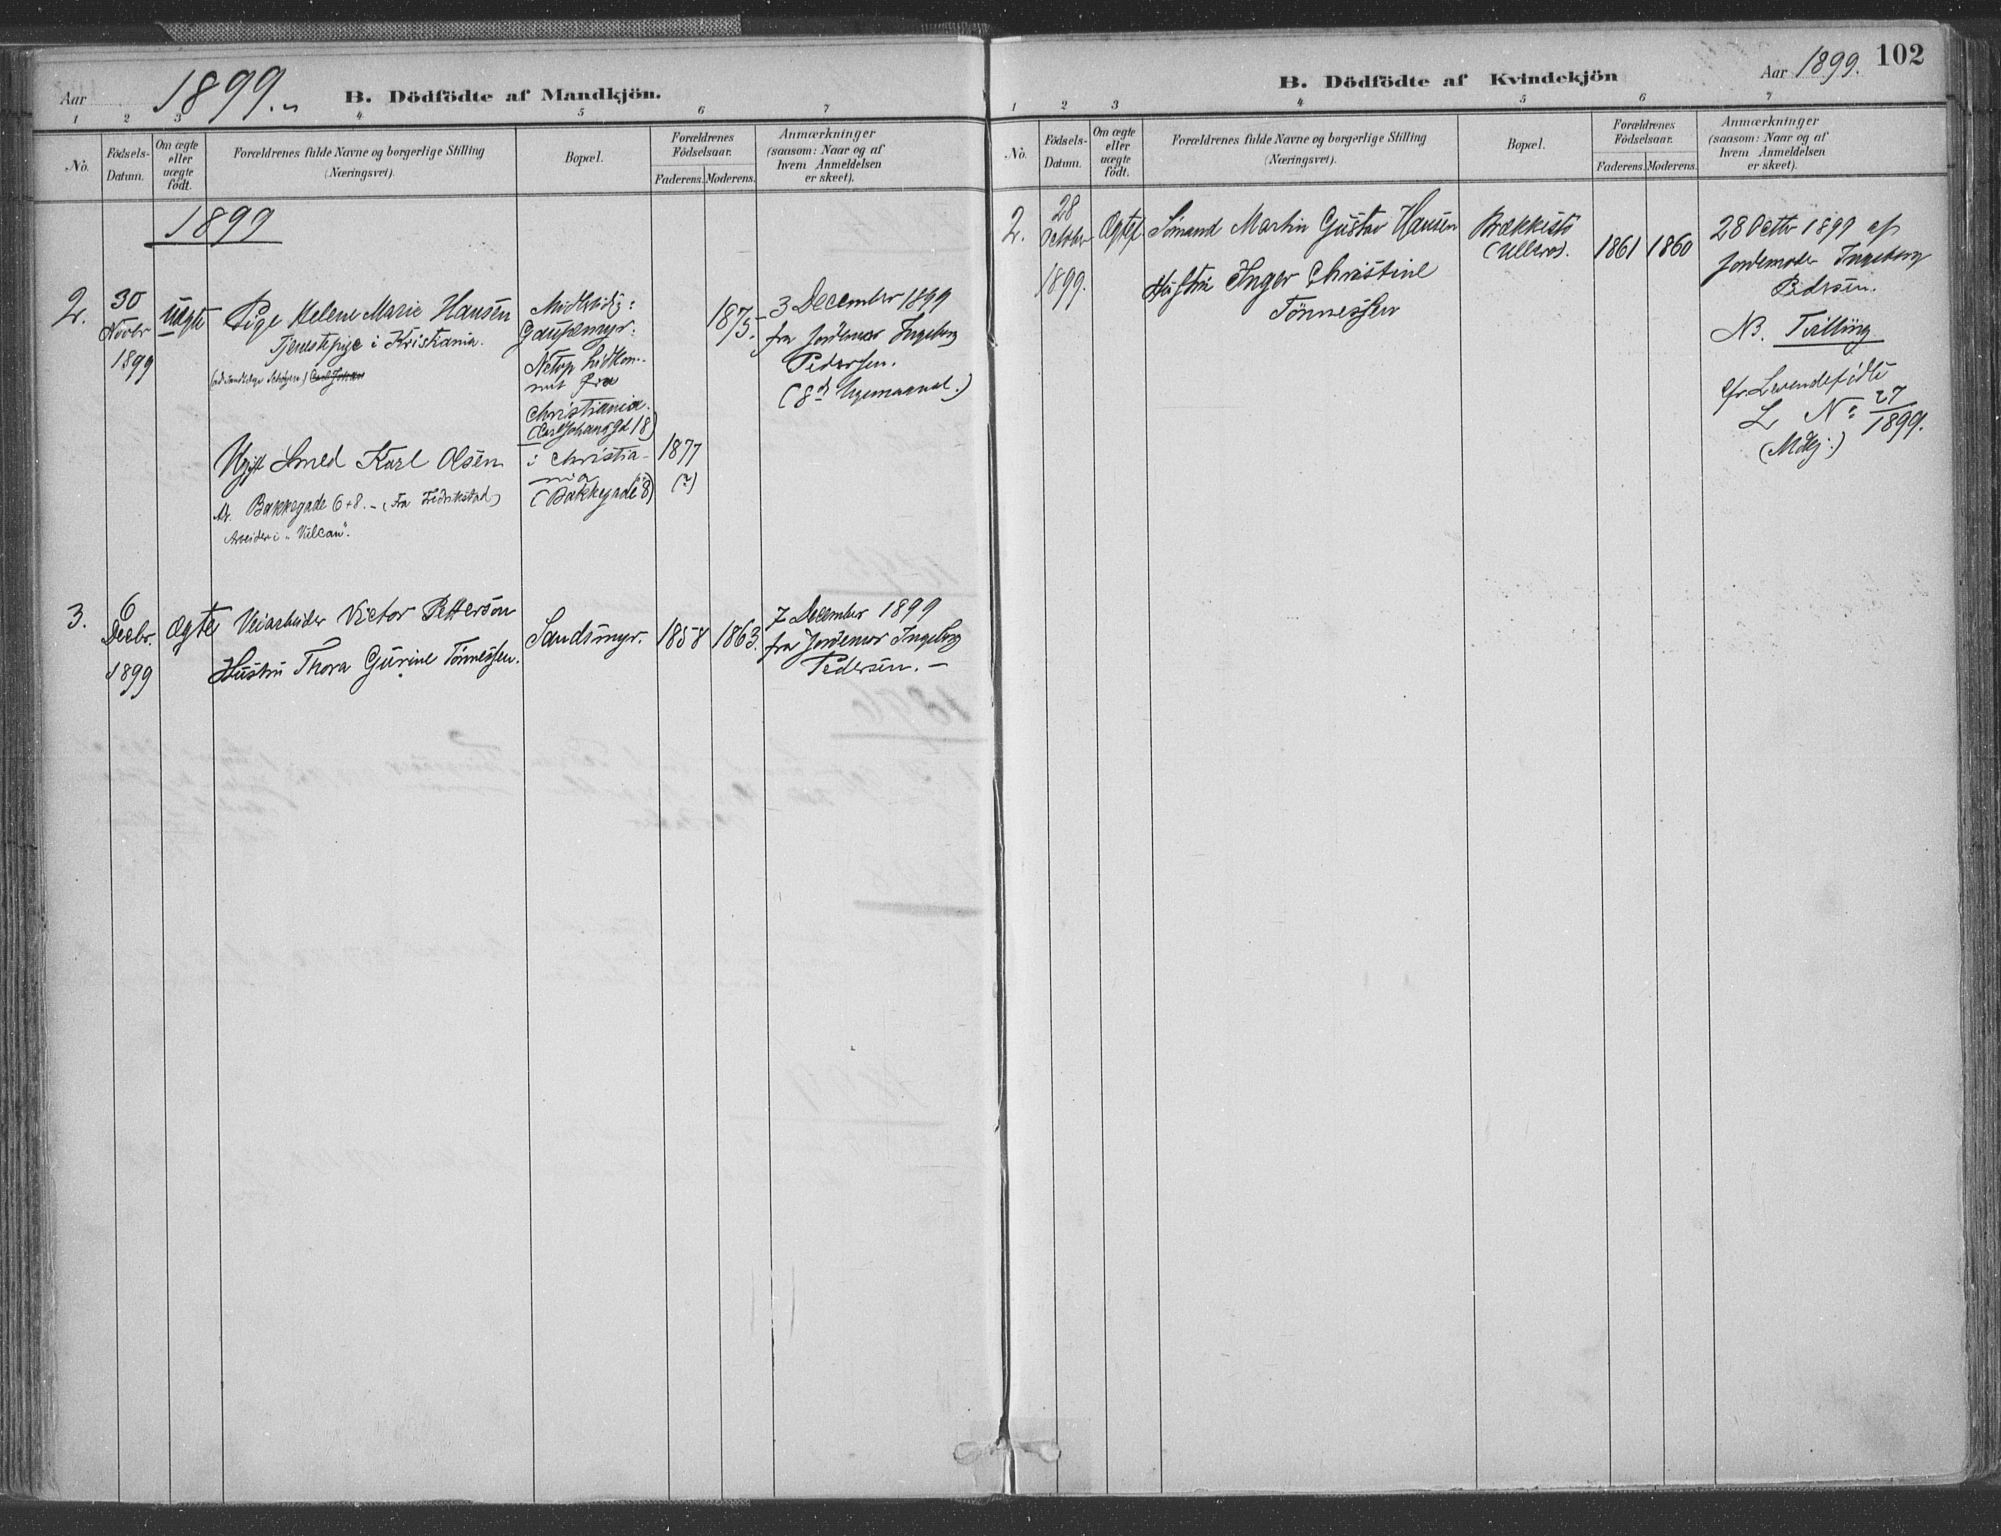 Aar 1899. B. Dödfödte af Mandkjön.
1 2 3 4 5 6 7
No. Födsels-Datum. Om ægte eller uægte födt. Forældrenes fulde Navne og borgerlige Stilling (Næringsvei). Bopæl. Forældrenes Födselsaar. Faderens. Moderens. Anmærkninger (saasom: Naar og af hvem Anmeldelsen er skeet).
1899
2. 30 Novbr 1899 Uægte
Pige Helene Marie Hansen
Tjenestepige i Kristiania.
Carl Johan
Midlertidig:
Gauslemyr:
Netop hidkom-
met fra
Christiania.
(Carl Johansgd 18)
1875
3 December 1899
fra Jordemor Ingeborg
Pedersen.
(8de Ugemaaned.)
Ugift Smed Karl Olsen
Bakkegade 6+8. - (Fra Fredrikstad)
Arbeider i "Vulcan".
i Christia-
nia
(Bakkegade 8)
1877
(?)
3. 6 Decbr. 1899 Ægte
Veiarbeider Victor Petterson
Hustru Thora Gurine Tønnessen.
Sandsmyr.
1858 1863.
7 December 1899
fra Jordemor Ingeborg
Pedersen. -
B. Dödfödte af Kvindekjön Aar 1899. 102
1 2 3 4 5 6 7
No. Födsels-Datum. Om ægte eller uægte födt. Forældrenes fulde Navne og borgerlige Stilling (Næringsvei). Bopæl. Forældrenes Födselsaar. Faderens. Moderens. Anmærkninger (saasom: Naar og af hvem Anmeldelsen er skeet).
2. 28 October 1899. Ægtef
Sømand Martin Gustav Hansen
Hustru Inger Christine
Tønnessen
Bækkestø
1861 1860
28 Octbr 1899 af
Jordemoder Ingeborg
Pedersen.
NB. Tvilling
cfr. Levendefødte
L. No 27/1899.
(Mdkj:)